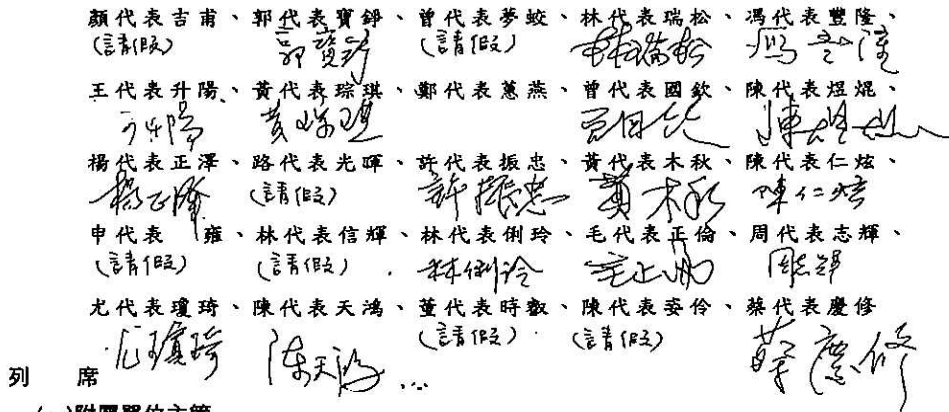 顏代表吉甫、郭代表寶錚、曾代表夢蛟、林代表瑞松、馮代表豐隆、
(請假) 郭寶錚 (請假) 林瑞松 馮豐隆
王代表升陽、黃代表琮琪、鄭代表蕙燕、曾代表國欽、陳代表焜焜、
王升陽 黃琮琪 曾國欽
楊代表正澤、路代表光暉、許代表振忠、黃代表木秋、陳代表仁炫、
楊正澤 (請假) 許振忠 黃木秋 陳仁炫
申代表 雍、林代表信輝、林代表俐玲、毛代表正倫、周代表志輝、
(請假) (請假) 林俐玲 毛正倫 周志輝
尤代表瓊琦、陳代表天鴻、董代表時叡、陳代表姿伶、蔡代表慶修
尤瓊琦 陳天鴻 (請假) (請假) 蔡慶修
列 席
(一)附屬單位主管